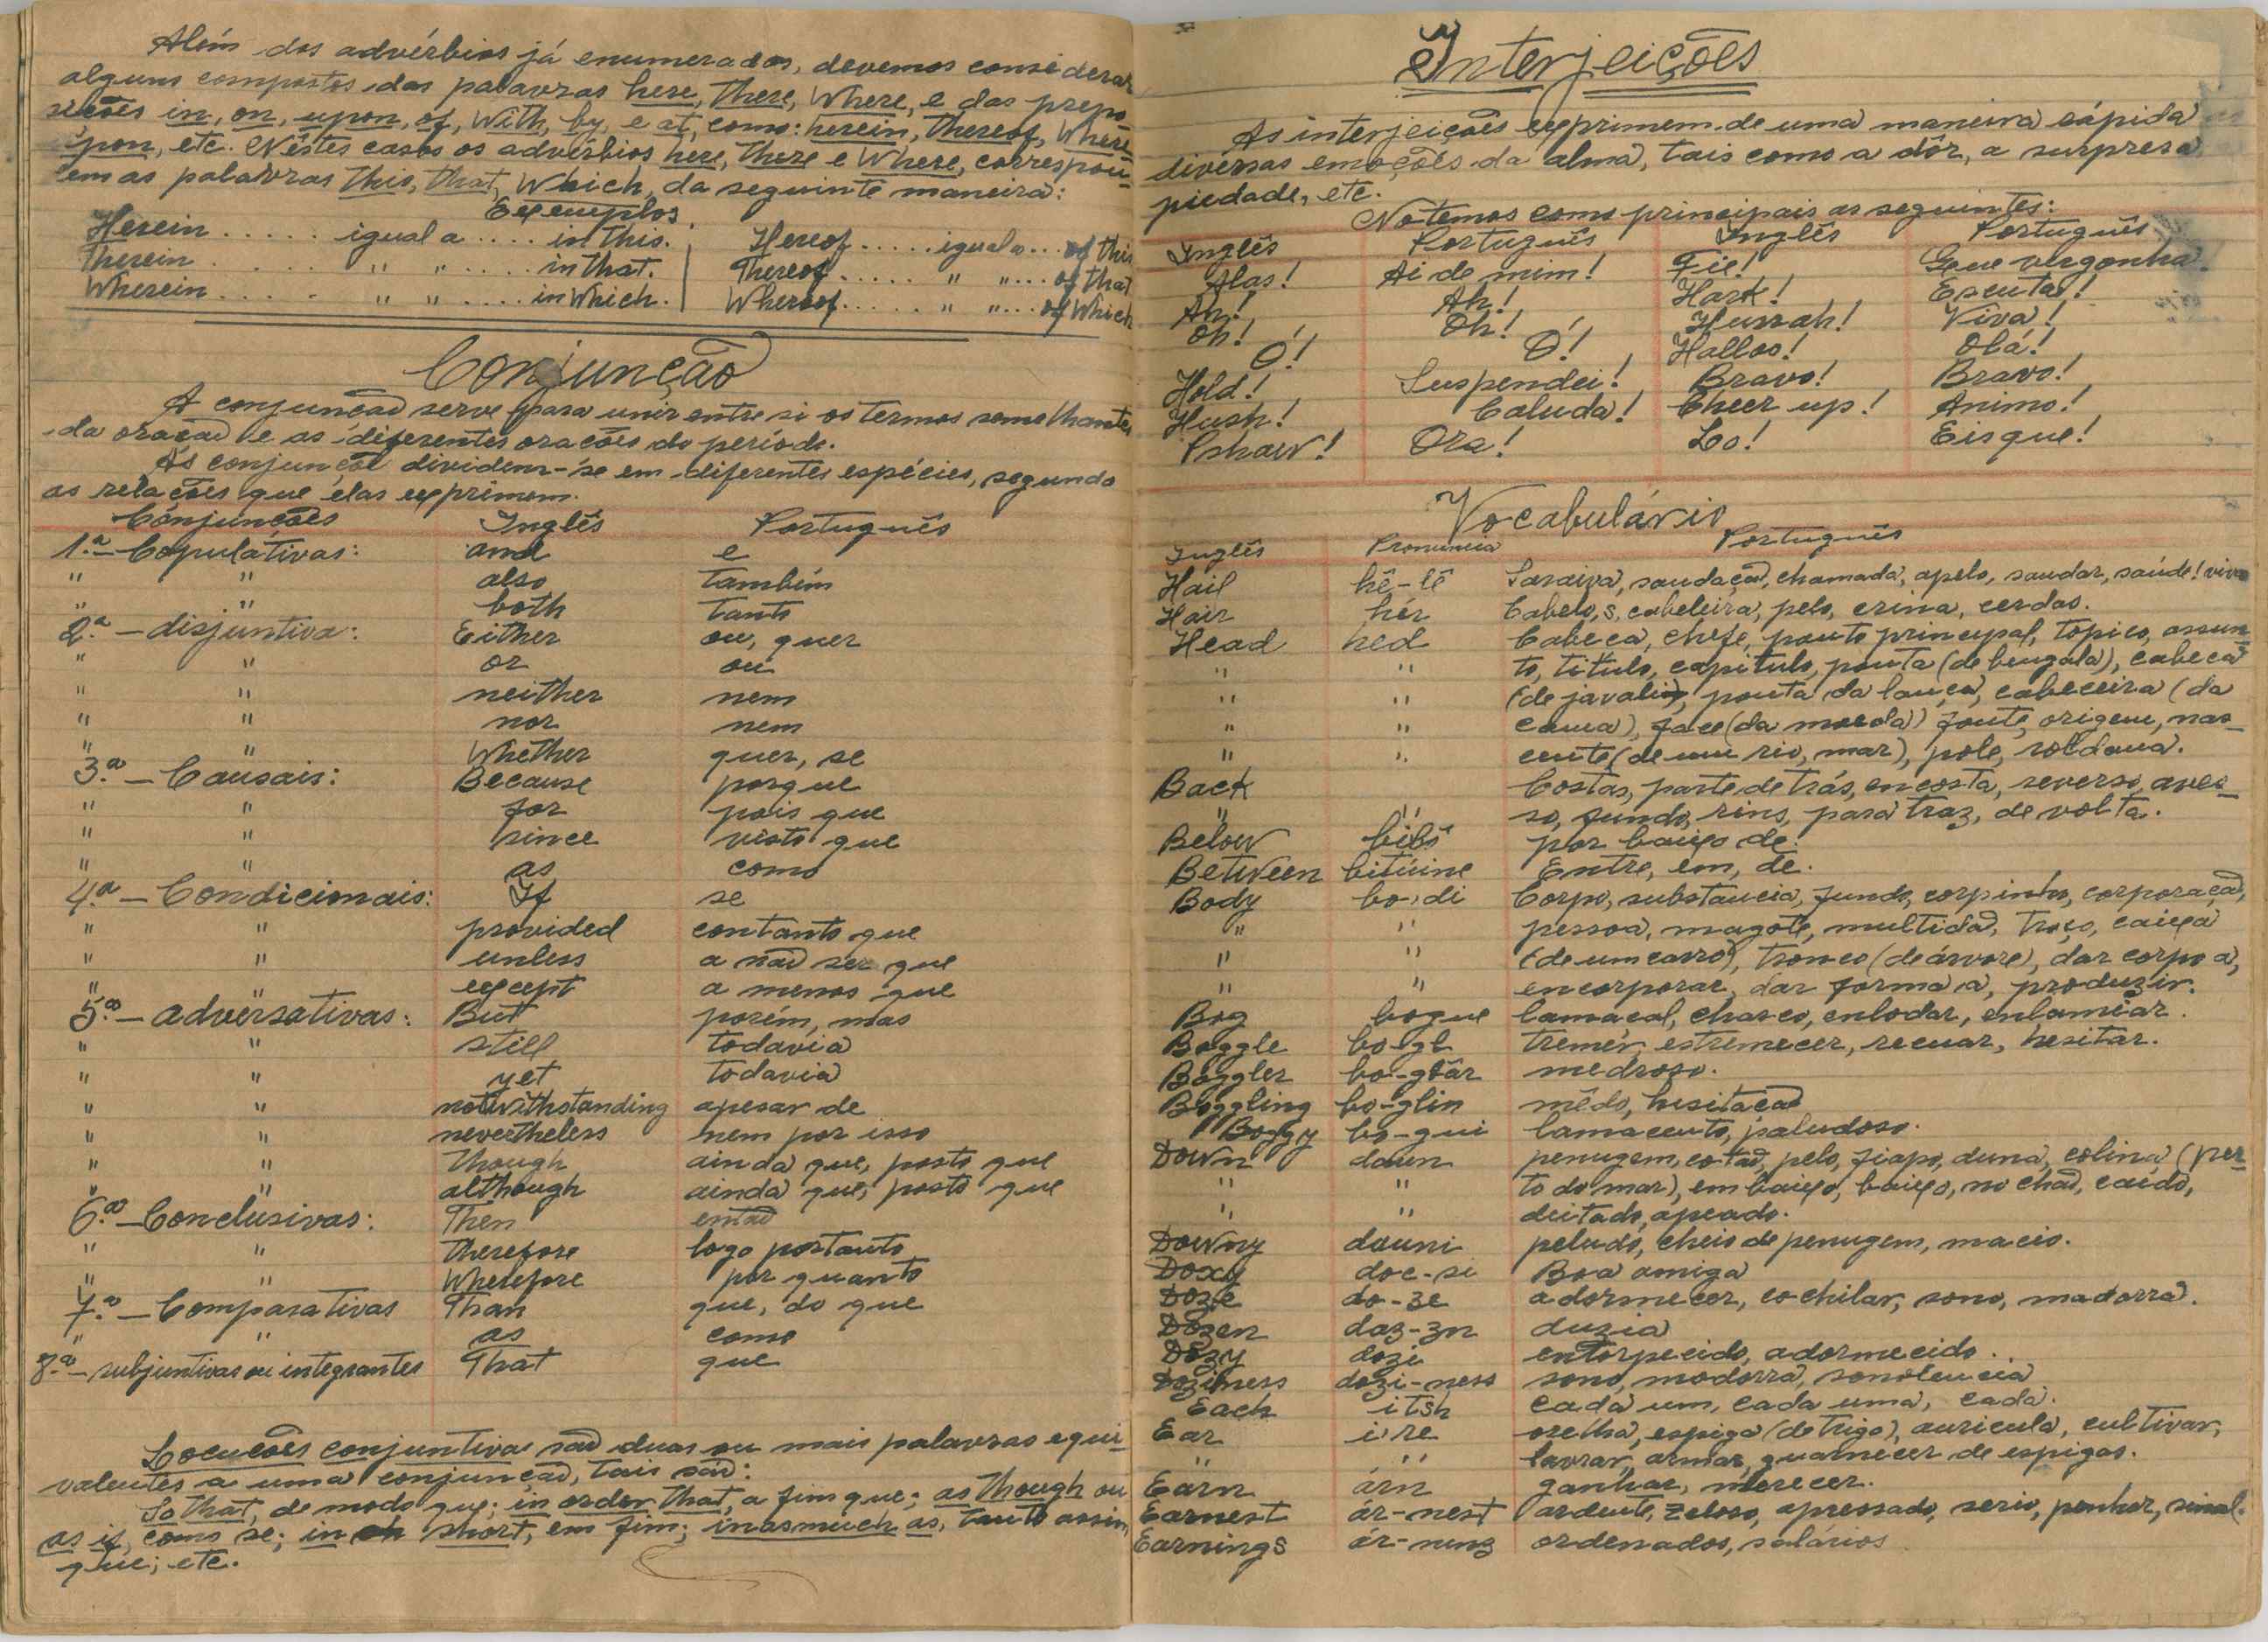 Além dos advérbios já enumerados, devemos considerar
alguns compostos das palavras here, There, Where, e das prepo
sições in, on, upon, of, With, by, e at, como: herein, thereof, Where
upon, etc. Nêstes casos os advérbios here, There e Where, correspon-
em as palavras This, That, Which, da seguinte maneira:
Exemplos:
Herein ..... igual a .... in This. Hereof ..... igual a ... of this
Therein ..... " " ..... in that. Thereof ..... " " ... of that
Wherein ..... " " .... in Which. Whereof ..... " " ... of Which
Conjunção
A conjunção serve para unir entre si os termos semelhantes
da oração e as diferentes orações do período.
As conjunçõe dividem-se em diferentes espécies, segundo
as relações que elas exprimem.
Conjunções Inglês Português
1.ª - Copulativas: and e
" " also também
" " both tanto
2.ª - disjuntiva: Either ou, quer
" " or ou
" " neither nem
" " nor nem
" " Whether quer, se
3.ª - Causais: Because porque
" " for pois que
" " since visto que
" " as como
4.ª - Condicionais: If se
" " provided contanto que
" " unless a não ser que
" " except a menos que
5.ª - adversativas: But porém, mas
" " still todavia
" " yet todavia
" " notwithstanding apesar de
" " nevertheless nem por isso
" " Though ainda que, posto que
" " although ainda que, posto que
6.ª - Conclusivas: Then então
" " Therefore logo portanto
" " Wherefore por quanto
7.ª - Comparativas Than que, do que
" " as como
8.ª - subjuntivas ou integrantes That que
Locuções conjuntivas são duas ou mais palavras equi-
valentes a uma conjunção, tais são:
So That, de modo que; in order That, a fim que; as Though ou
as if, como se; in short, em fim; inasmuch as, tanto assim
que; etc.
Interjeições
As interjeições exprimem de uma maneira rápida
diversas emoções da alma, tais como a dôr, a surpresa
piedade, etc.
Notemos como principais as seguintes:
Inglês Português Inglês Português
Alas! Ai de mim! Fie! Que vergonha.
Ah! Ah! Hark! Escuta!
Oh! Oh! Hurrah! Viva!
Ó! Ó! Halloo! Olá!
Hold! Suspendei! Bravo! Bravo!
Hush! Caluda! Cheer up! Animo!
Pshaw! Ora! Lo! Eis que!
Vocabulário
Inglês Pronuncia Português
Hail hê-lê Saraiva, saudação, chamada, apelo, saudar, saúde! viva
Hair hér Cabelo, s, cabeleira, pelo, crina, cerdas.
Head hed Cabeça, chefe, ponto principal, tópico, assun-
" " to, titulo, capitulo, ponta (de bengala), cabeça
" " (de javali), ponta da lança, cabeceira (da
" " cama), face (da moeda) fonte, origem, nas-
" " cente (de um rio, mar), pole, roldana.
Back Costas, parte de trás, encosta, reverso, aves-
" " so, fundo, rins, para traz, de volta.
Below bilô por baixo de.
Between bitúine Entre, em, de.
Body bo-di Corpo, substancia, fundo, corpinho, corporação,
" " pessoa, magote, multidão, troço, caixa
" " (de um carro), tronco (de árvore), dar corpo a,
" " encorporar, dar forma a, produzir.
Bog bogue lamaçal, charco, enlodar, enlamiar.
Boggle bo-gl tremêr, estremecer, recuar, hesitar.
Boggler bo-glâr medroso.
Boggling bo-glin mêdo, hesitação
Boggy bo-gui lamacento, paludoso.
Down daun penugem, cotão, pelo, fiapo, duna, colina (per-
" " to do mar), em baixo, baixo, no chão, caído,
" " deitado, apeado.
Downy dauni peludo, cheio de penugem, macio.
Doxy doc-si Boa amiga
Doze do-ze adormecer, cochilar, sono, madorra.
Dozen daz-zn duzia
Dozy dozi entorpecido, adormecido.
Doziness dozi-ness sono, modorra, sonolencia
Each itsh cada um, cada uma, cada.
Ear ire orelha, espiga (de trigo), auricula, cultivar,
" " lavrar, armar, guarnecer de espigas.
Earn árn ganhar, merecer.
Earnest ár-nest ardente, zeloso, apressado, serio, penhor, sinal.
Earnings ár-ninz ordenados, salários